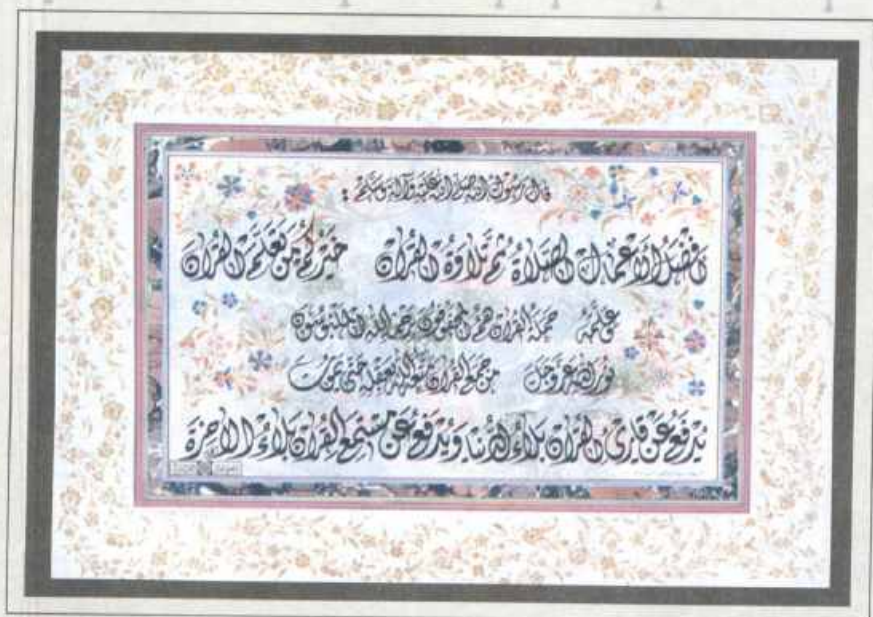 قال رسول الله صلى الله عليه وآله وسلم :
افضل الأعمال الصلاة ثم تلاوة القرآن خيركم من تعلم القرآن
وعلمه حملة القرآن هم المحفوفون برحمة الله الملبوسون
نور الله عز وجل من جمع القرآن متعه الله بعقله حتى يموت
يدفع عن قارئ القرآن بلاء الدنيا ويدفع عن مستمع القرآن بلاء الآخرة